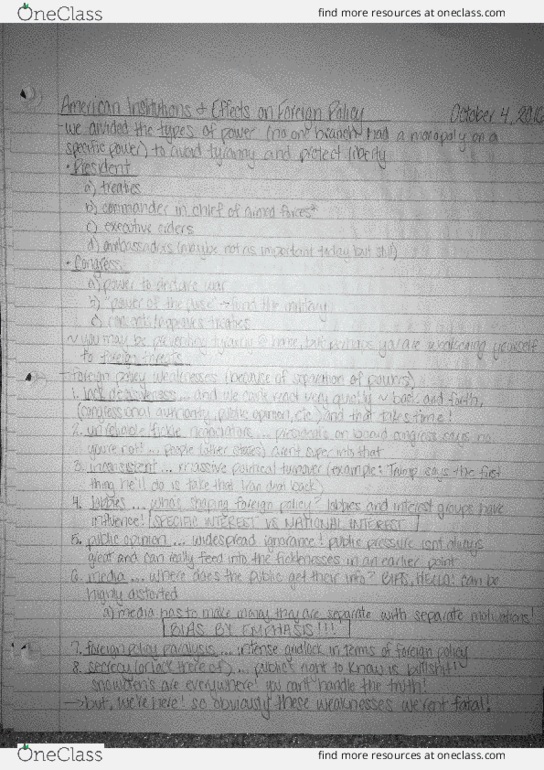 OneClass
find more resources at oneclass.com
American Institutions + Effects on Foreign Policy October 4, 2016
we divided the types of power (no one branch had a monopoly on a
specific power) to avoid tyranny and protect liberty
• President
a) treaties
b) commander in chief of armed forces*
c) executive orders
d) ambassadors (maybe not as important today but still)
• Congress
a) power to declare war
b) "power of the purse" → fund the military
c) treaties
~ you may be preventing tyranny @ home, but perhaps you are weakening yourself
to foreign threats
- Foreign policy weaknesses (because of separation of powers)
1. lack of ... and we can't react very quickly ~ back and forth,
(congressional authority, public opinion, etc.) and that takes time!
2. unreliable fickle negotiators ... president on board congress says no
you're not! ... people (other states) don't
3. inconsistent ... massive political turnover (example: Trump says the first
thing he'll do is take that Iran deal back)
4. lobbies ... who's shaping foreign policy? lobbies and interest groups have
influence! SPECIFIC INTEREST VS NATIONAL INTEREST
5. public opinion ... widespread ignorance! public pressure isnt always
great and can really feed into the fickleness in an earlier point
6. media ... where does the public get their info? HELLO! can be
highly distorted
a) media has to make money they are separate with separate motivations!
BIAS BY EMPHASIS!!!
7. foreign policy paralysis ... intense gridlock in terms of foreign policy
8. secrecy (or lack there of) ... public's right to know is bullshit!
snowden's are everywhere! you can't handle the truth!
→ but, we're here! so obviously these weaknesses weren't fatal!
OneClass
find more resources at oneclass.com